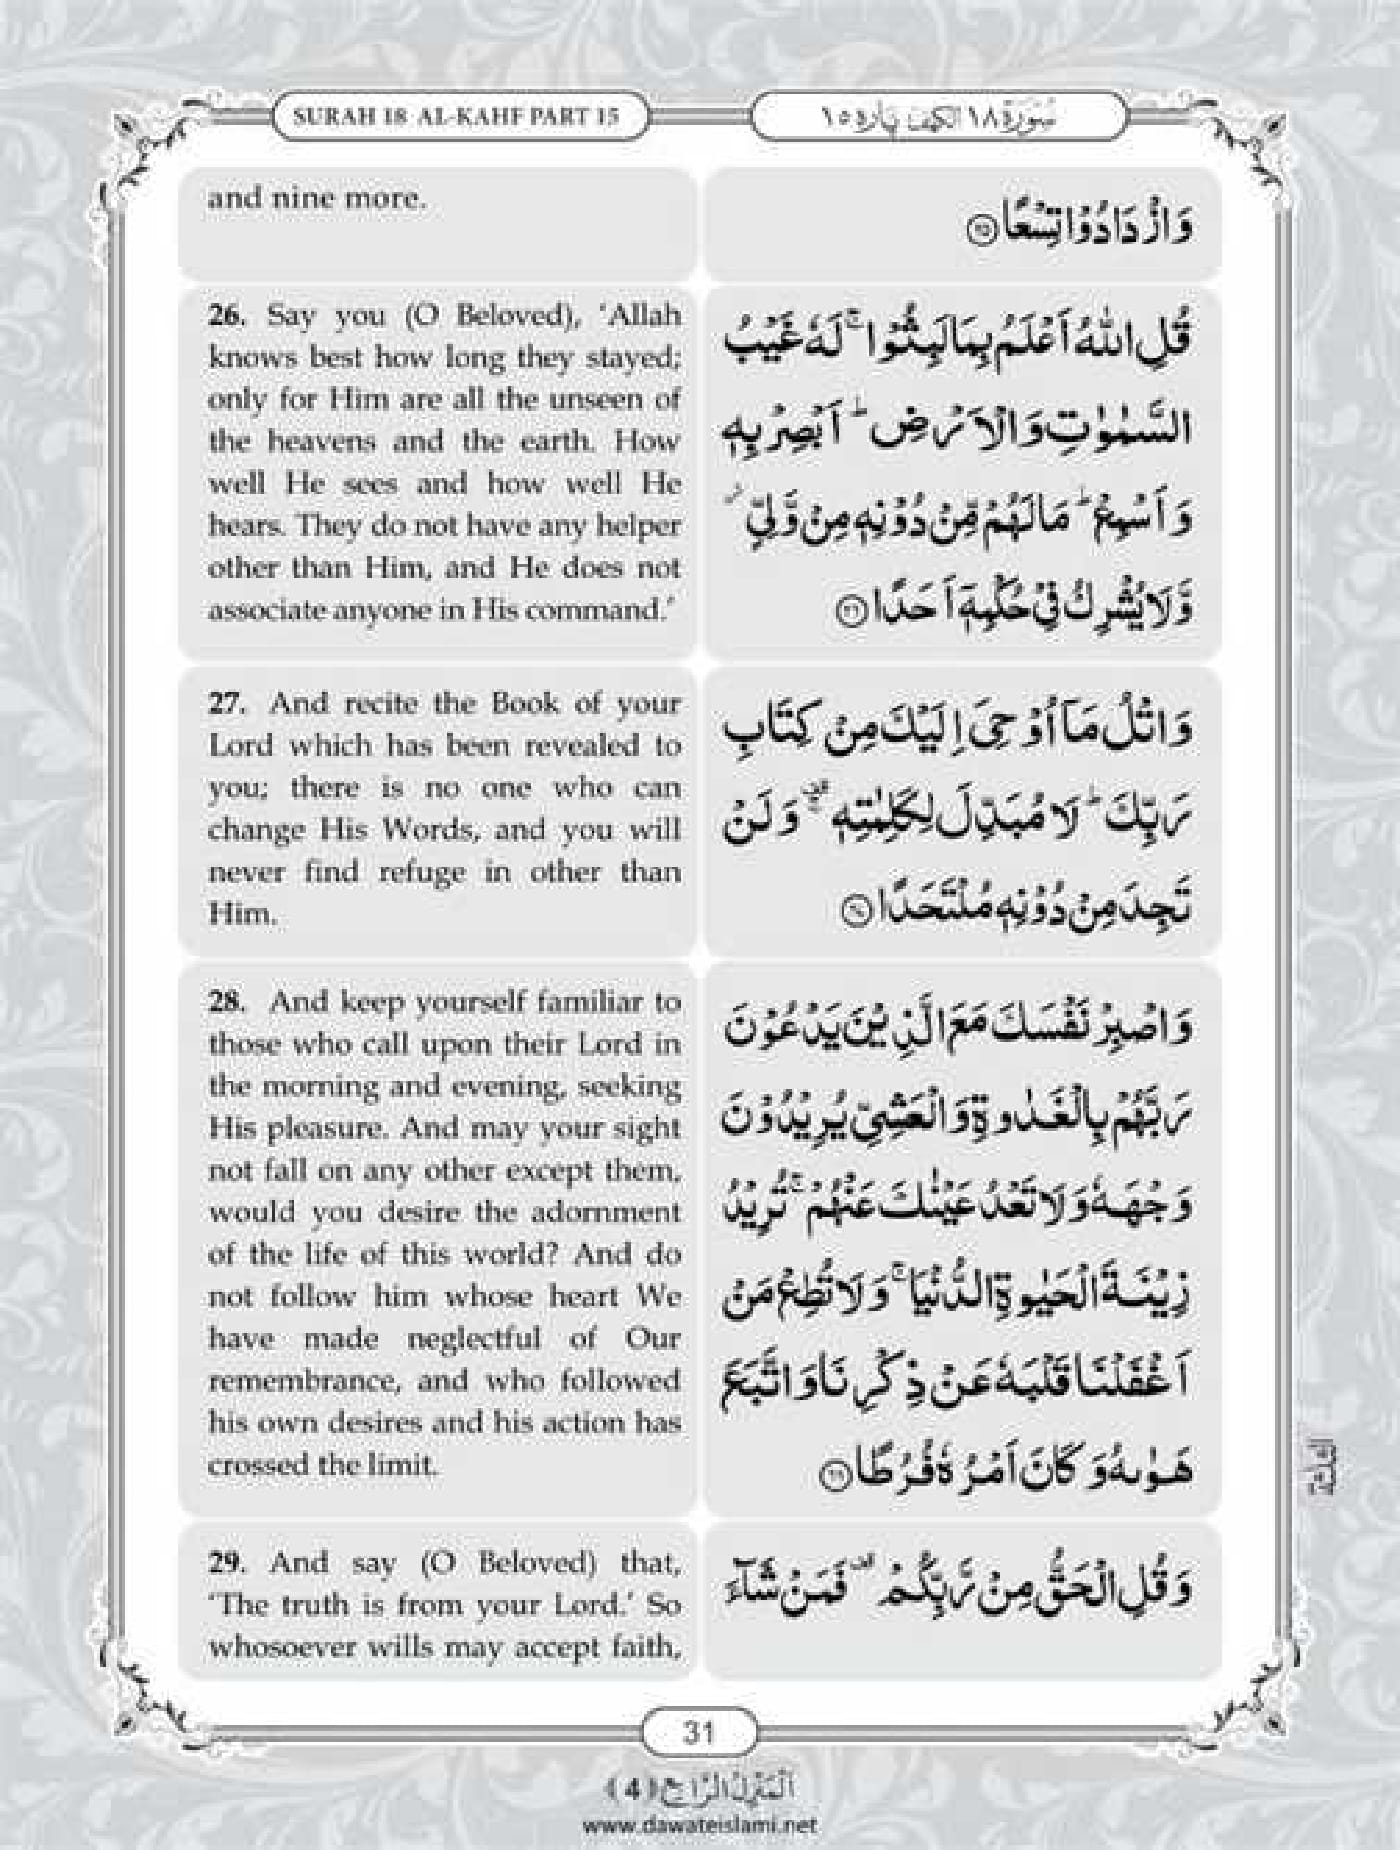 SURAH 18 AL-KAHF PART 15
سُوْرَةُ ١٨ الكهف پاره ١٥
and nine more.
وَازْدَادُوْا تِسْعًا ﴿۲۵﴾
26. Say you (O Beloved), ‘Allah
knows best how long they stayed;
only for Him are all the unseen of
the heavens and the earth. How
well He sees and how well He
hears. They do not have any helper
other than Him, and He does not
associate anyone in His command.’
قُلِ اللّٰهُ اَعْلَمُ بِمَا لَبِثُوْا ۚ لَهٗ غَیْبُ
السَّمٰوٰتِ وَالْاَرْضِ ؕ اَبْصِرْ بِهٖ
وَاَسْمِعْ ؕ مَا لَهُمْ مِّنْ دُوْنِهٖ مِنْ وَّلِیٍّ ۫
وَّلَا یُشْرِكُ فِیْ حُكْمِهٖۤ اَحَدًا ﴿۲۶﴾
27. And recite the Book of your
Lord which has been revealed to
you; there is no one who can
change His Words, and you will
never find refuge in other than
Him.
وَاتْلُ مَاۤ اُوْحِیَ اِلَیْكَ مِنْ كِتَابِ
رَبِّكَ ؕ لَا مُبَدِّلَ لِكَلِمٰتِهٖ ۚ۟ وَلَنْ
تَجِدَ مِنْ دُوْنِهٖ مُلْتَحَدًا ﴿۲۷﴾
28. And keep yourself familiar to
those who call upon their Lord in
the morning and evening, seeking
His pleasure. And may your sight
not fall on any other except them,
would you desire the adornment
of the life of this world? And do
not follow him whose heart We
have made neglectful of Our
remembrance, and who followed
his own desires and his action has
crossed the limit.
وَاصْبِرْ نَفْسَكَ مَعَ الَّذِیْنَ یَدْعُوْنَ
رَبَّهُمْ بِالْغَدٰوةِ وَالْعَشِیِّ یُرِیْدُوْنَ
وَجْهَهٗ وَلَا تَعْدُ عَیْنٰكَ عَنْهُمْ ۚ تُرِیْدُ
زِیْنَةَ الْحَیٰوةِ الدُّنْیَا ۚ وَلَا تُطِعْ مَنْ
اَغْفَلْنَا قَلْبَهٗ عَنْ ذِكْرِنَا وَاتَّبَعَ
هَوٰىهُ وَكَانَ اَمْرُهٗ فُرُطًا ﴿۲۸﴾
29. And say (O Beloved) that,
‘The truth is from your Lord.’ So
whosoever wills may accept faith,
وَقُلِ الْحَقُّ مِنْ رَّبِّكُمْ ۟ فَمَنْ شَآءَ
31
اَلْمَنْزِلُ الرَّابِع (4)
www.dawateislami.net